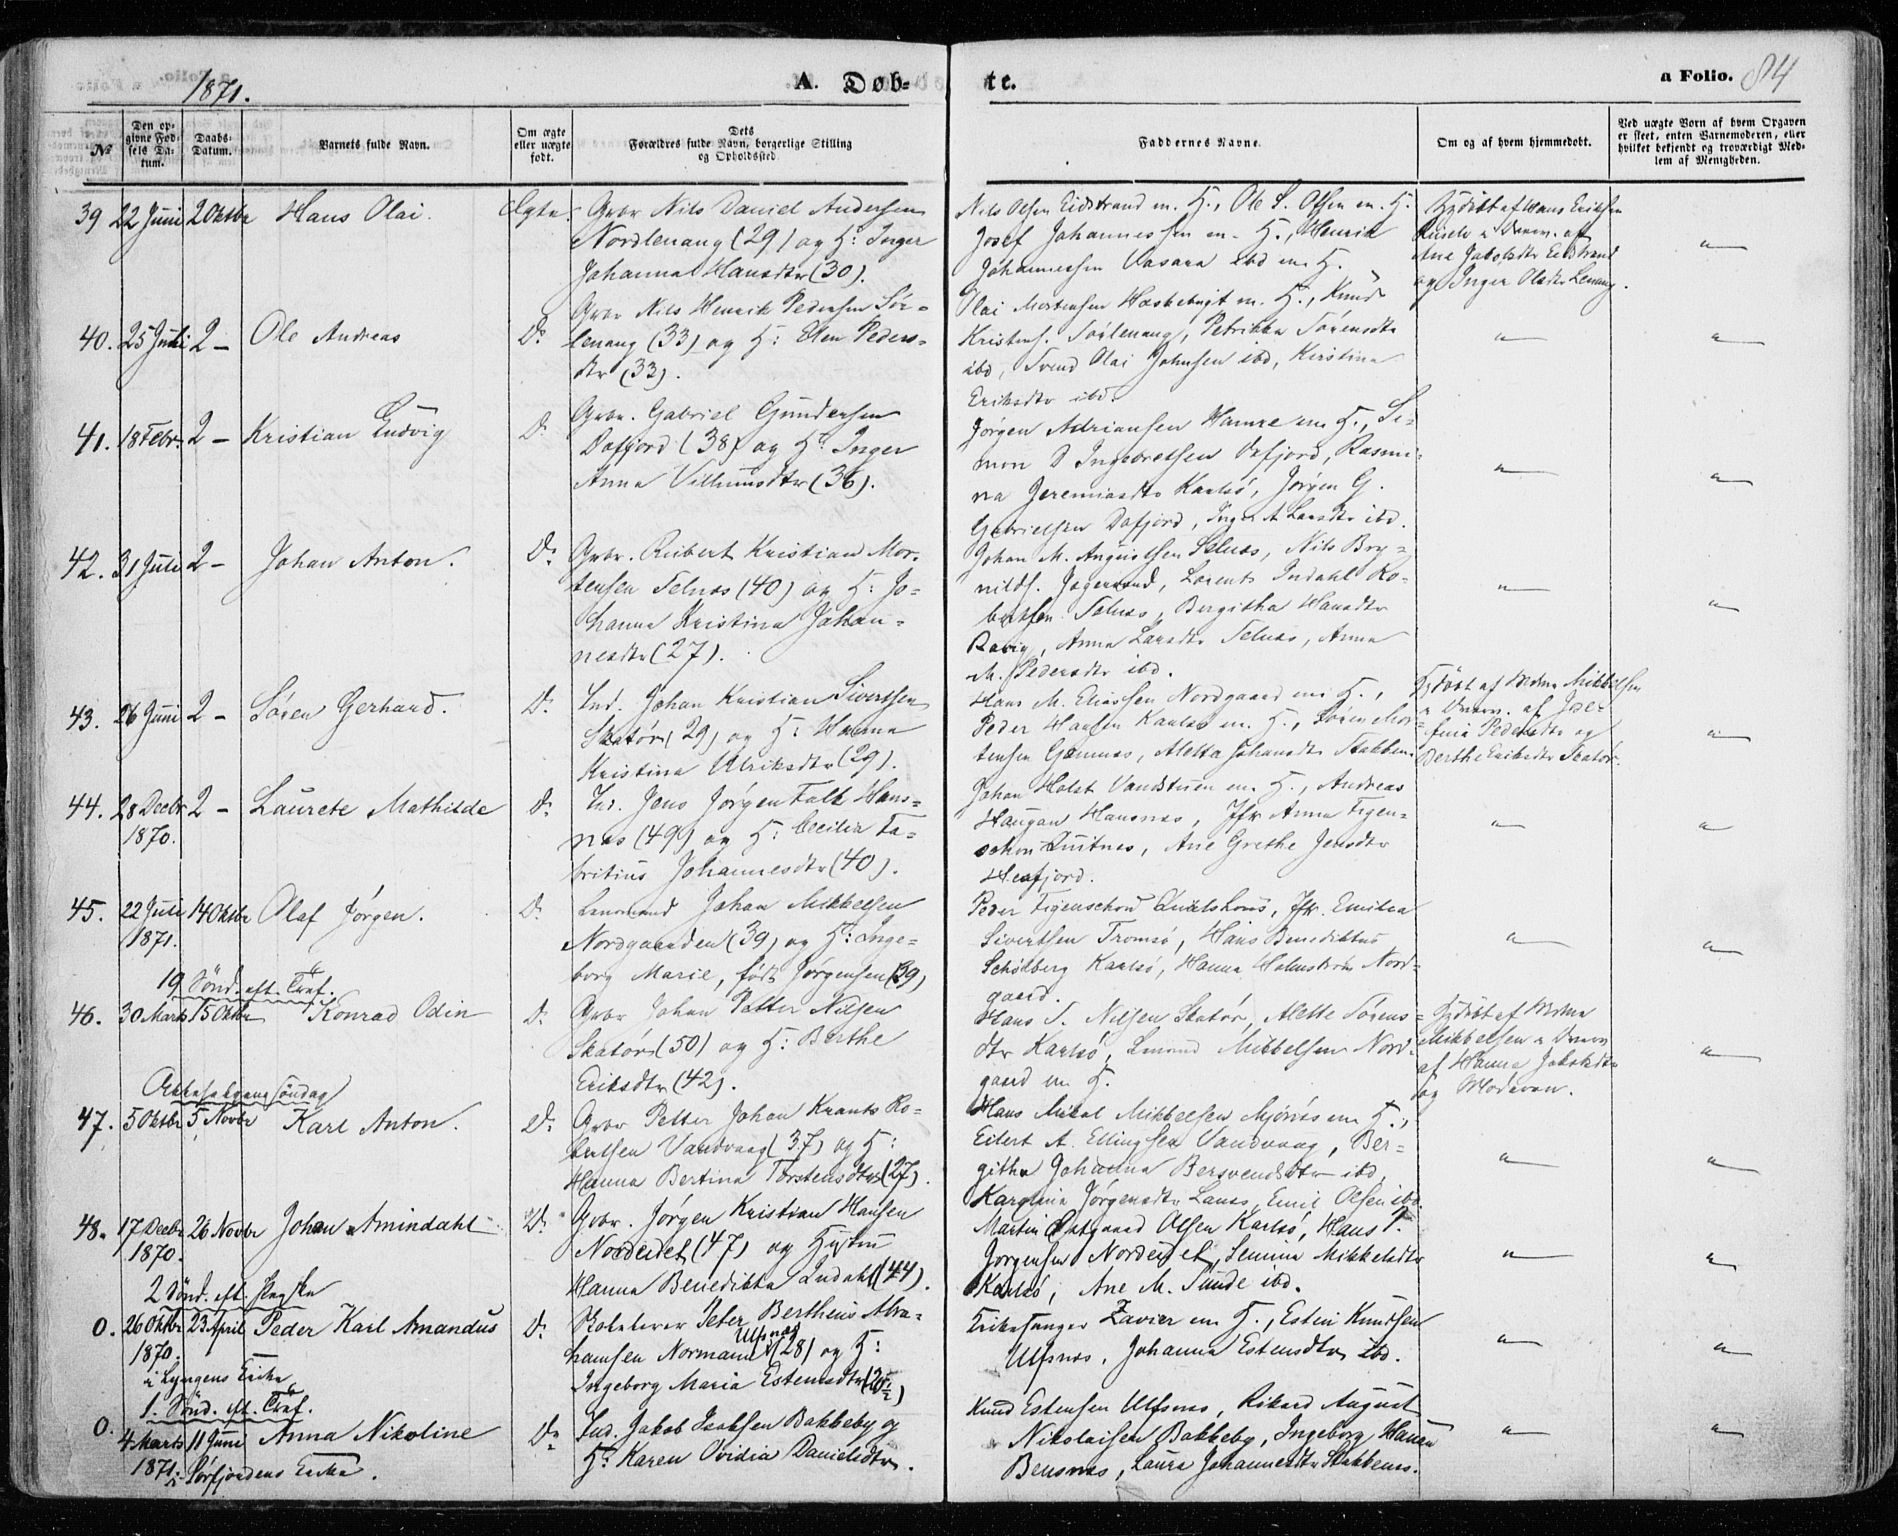 1871.
A. Døb-
te.
a Folio. 84
No
Den op-
givne Fød-
sels Da-
tum.
Daabs-
Datum.
Barnets fulde Navn.
Om ægte
eller uægte
født.
Dets
Forældres fulde Navn, borgerlige Stilling
og Opholdssted.
Faddernes Navne.
Om og af hvem hjemmedøbt.
Ved uægte Børn af hvem Opgaven
er skeet, enten Barnemoderen, eller
hvilket bekjendt og troværdigt Med-
lem af Menigheden.
39 22 Juni 2 Oktbr Hans Olai. Ægte.
Gbr Nils Daniel Andersen
Nordlenang (29) og H: Inger
Johanna Hansdtr (30).
Nils Olsen Eidstrand m. H., Ole S. Olsen m. H.
Josef Johannessen m. H., Henrik
Johannessen Vasara ibd m. H.
Hjdøbt af Hans Eriksen
af
Ane Jakobsdtr Eidstrand
og Inger Olsdtr Lenang.
"
40. 25 Juli 2 – Ole Andreas Do
Gbr Nils Henrik Pedersen Sør-
lenang (33) og H: Elen Peders-
dtr (33).
Olai Mortensen Hessebugt m. H., Knud
Kristens. Sørlenang, Petrikka Sørensdtr
ibd, Svend Olai Johnsen ibd, Kirstina
Eriksdtr ibd.
" "
41. 18 Febr. 2 – Kristian Ludvig Do
Gbr. Gabriel Gundersen
Dafjord (38) og H: Inger
Anna Villumsdtr (36).
Jørgen Adriansen Hamre m. H., Si-
mon D Ingebretsen Dafjord, Rasmi-
na Jeremiasdtr Karlsø, Jørgen G.
Gabrielsen Dafjord, Inger A Larsdtr ibd.
" "
42. 31 Juli 2 – Johan Anton. Do
Gbr. Robert Kristian Mor-
tensen Selnæs (40) og H: Jo-
hanna Kristina Johan-
nesdtr (27).
Johan M. Angustsen Selnæs, Nils Bry-
nilds. Jøgersund, Lorents Indahl Ro-
bertsen Selnæs, Bergitha Hansdtr
Ravig, Anna Larsdtr Selnæs, Anna
M. Pedersdtr ibd.
" "
43. 26 Juni 2 – Søren Gerhard. Do
Ind. Johan Kristian Sivertsen
Skatør (29) og H: Hanna
Kristina Ulriksdtr (29).
Hans M. Eliassen Nordgaard m. H.,
Peder Hansen Karlsø m. H., Søren Mor-
tensen Gamnæs, Aletta Johansdtr Stakken
Hjdøbt af Mikkelsen
af Jose-
fine Pedersdtr og
Berthe Eriksdtr Skatør.
"
44. 28 Decbr 2 – Laurete Mathilde Do
1870.
Ind. Jens Jørgen Falk Hans-
næs (49) og H: Cecilia Fa-
britius Johannesdtr (40).
Johan Holst Vandstuen m. H., Andreas
Haugan Hansnæs, Jfr Anna Figen-
schou Quitnes, Ane Grethe Jensdtr
Hessfjord.
" "
45. 22 Juli 14 Oktbr Olaf Jørgen. Do
1871.
Lensmand Johan Mikkelsen
Nordgaarden (39) og H: Inge-
borg Marie, født Jørgensen (39)
Peder Figenschou Qualshous, Jfr. Emilia
Sivertsen Tromsø, Hans Benediktus
Schølberg Karlsø, Hanna Holmstrøm Nord-
gaard.
" "
19 Sønd. eft. Tref.
46. 30 Marts 15 Oktbr Konrad Odin Do
Gbr Johan Petter Nilsen
Skatør (50) og H: Berthe
Eriksdtr (42).
Hans S. Nilsen Skatør, Alette Sørens-
dtr Karlsø, Lmand Mikkelsen Nord-
gaard m. H.
Hjdøbt af
Mikkelsen
af Hanna Jakobsdtr
og Moderen.
"
47. 5 Oktbr 5 Novbr Karl Anton. Do
Gbr Petter Johan Krants Ro-
bertsen Vandvaag (37) og H:
Hanna Bertina Torstensdtr (27).
Hans Mikal Mikkelsen Mjønes m. H.,
Eilert A. Ellingsen Vandvaag, Ber-
githe Johanna Bersvendsdtr ibd,
Karoline Jørgensdtr Lanes, Emil Olsen ibd.
" "
48. 17 Decbr 26 Novbr Johan Amindahl Do
1870.
Gbr. Jørgen Kristian Hansen
Nordeidet (47) og Hustru
Hanna Benedikta Indahl (44).
Martin Østgaard Olsen Karlsø, Hans P.
Jørgensen Nordeidet, Lemina Mikkelsdtr
Karlsø, Ane M. Sunde ibd.
" "
2 Sønd. eft. Paaske
0. 26 Oktbr 23 April Peder Karl Amandus Do
1870.
i Lyngens Kirke
Skolelærer Peter Bertheus Abra-
hamsen Normann Ulfsnæs (28) og H:
Ingeborg Maria Estensdtr (20½)
Kirkesanger Zavier m. H., Esten Knudsen
Ulfsnæs, Johanna Estensdtr ibd.
" "
1. Sønd. eft. Tref.
0. 4 Marts 11 Juni Anna Nikoline Do
1871. i Sørfjordens Kirke.
Ind. Jakob Isaksen Bakkeby og
H: Karen Ovidia Danielsdtr.
Knud Estensen Ulfsnæs, Rikard August
Nikolaisen Bakkeby, Ingeborg Hansen
Bensnæs, Laura Johannesdtr Stakkenes.
" "